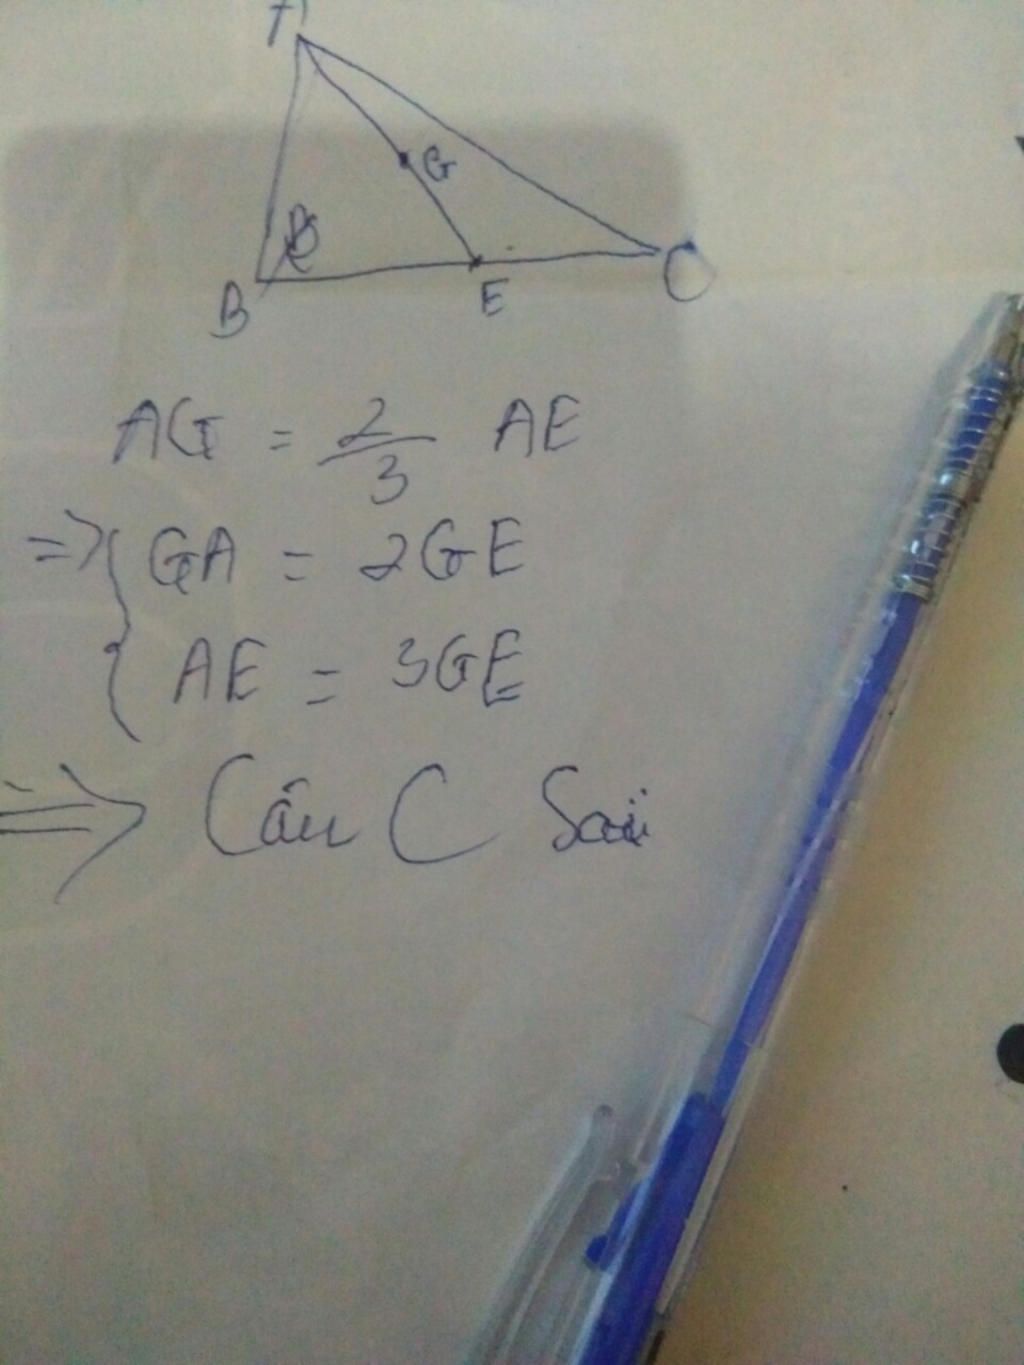 A
G
B
E
C
AG = 2/3 AE
=> { GA = 2GE
AE = 3GE
=> Câu C Sai